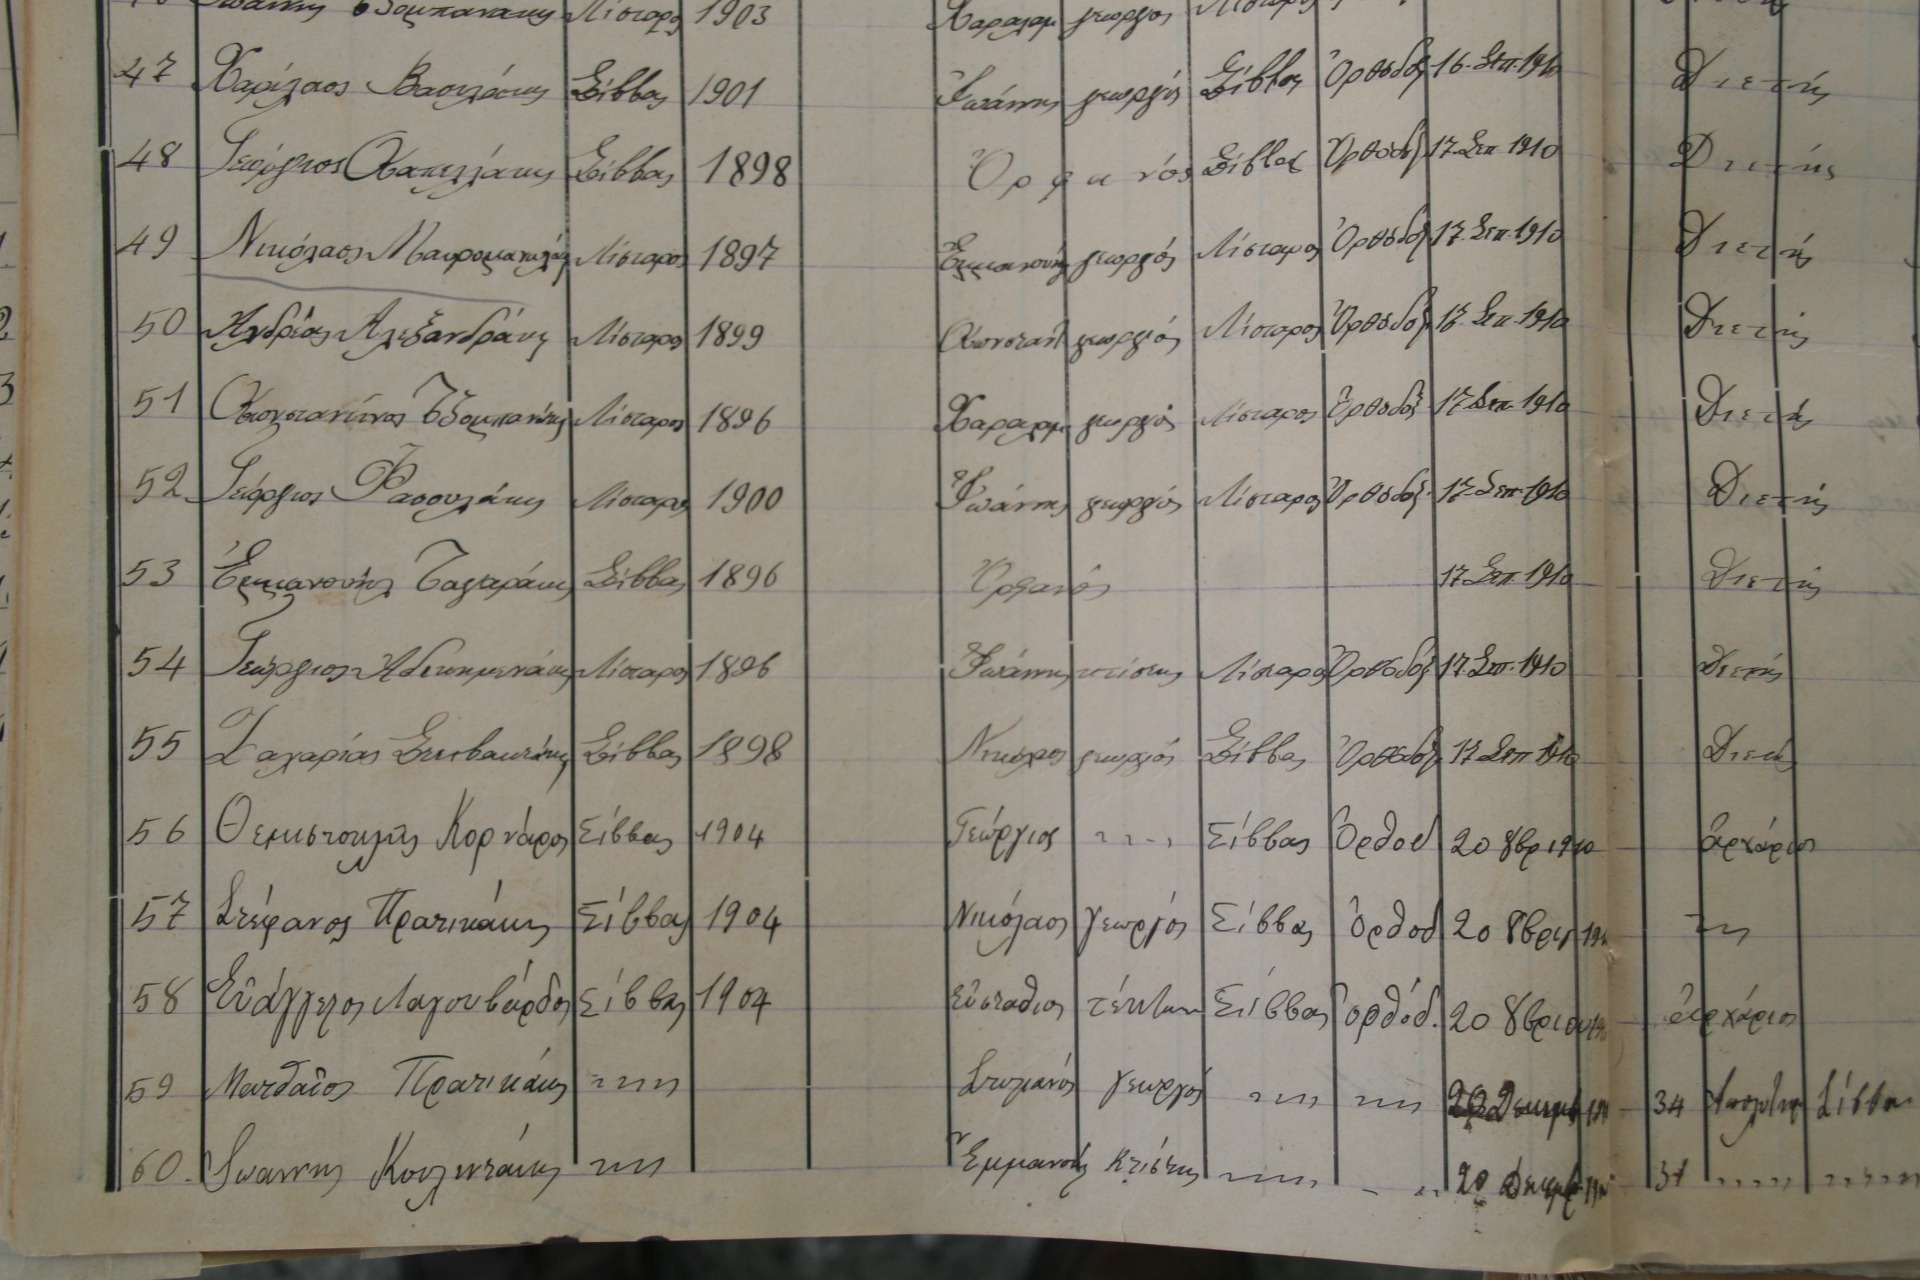 1903 Χαραλαμ γεωργός
47 Χαρίλαος Βασιλάκης Σίββας 1901 Ἰωάννης γεωργός Σίββας Ὀρθόδοξ 16 Σεπ. 1910 Διετής
48 Γεώργιος Σίββας 1898 Ὀρφανός Σίββας Ὀρθόδοξ 17 Σεπ 1910 Διετής
49 Νικόλαος Λίσταρος 1897 Ἐμμανουήλ γεωργός Λίσταρος Ὀρθόδοξ 17 Σεπ. 1910 Διετής
50 Ἀνδρέας Ἀλεξανδράκης Λίσταρος 1899 Κωνσταντ γεωργός Λίσταρος Ὀρθόδοξ 17 Σεπ. 1910 Διετής
51 Κωνσταντίνος Λίσταρος 1896 Χαραλαμ γεωργός Λίσταρος Ὀρθόδοξ 17 Σεπ 1910 Διετής
52 Γεώργιος Φασουλάκης Λίσταρος 1900 Ἰωάννης γεωργός Λίσταρος Ὀρθόδοξ. 17 Σεπ. 1910 Διετής
53 Ἐμμανουήλ Σίββας 1896 Ὀρφανός 17 Σεπ 1910 Διετής
54 Γεώργιος Λίσταρος 1896 Ἰωάννης κτίστης Λίσταρος Ὀρθόδοξ 17 Σεπ. 1910 Διετής
55 Ζαχαρίας Σπιθακάκης Σίββας 1898 Νικόλαος γεωργός Σίββας Ὀρθόδοξ 17 Σεπ 1910 Διετής
56 Θεμιστοκλῆς Κορνάρος Σίββας 1904 Γεώργιος Σίββας Ὀρθοδ 20 8βρ 1910 ἀρχάριος
57 Στέφανος Πρατικάκης Σίββας 1904 Νικόλαος γεωργός Σίββας Ὀρθοδ 20 8βρι
58 Εὐάγγελος Λαγουβάρδος Σίββας 1904 Εὐστάθιος τέκτων Σίββας Ὀρθόδ. 20 8βρίου ἀρχάριος
59 Ματθαῖος Πρατικάκης Στυλιανός γεωργός 20 Δεκεμβ 34 Σίββα
60. Ἰωάννης Ἐμμανουήλ κτίστης 20 Δεκεμβ